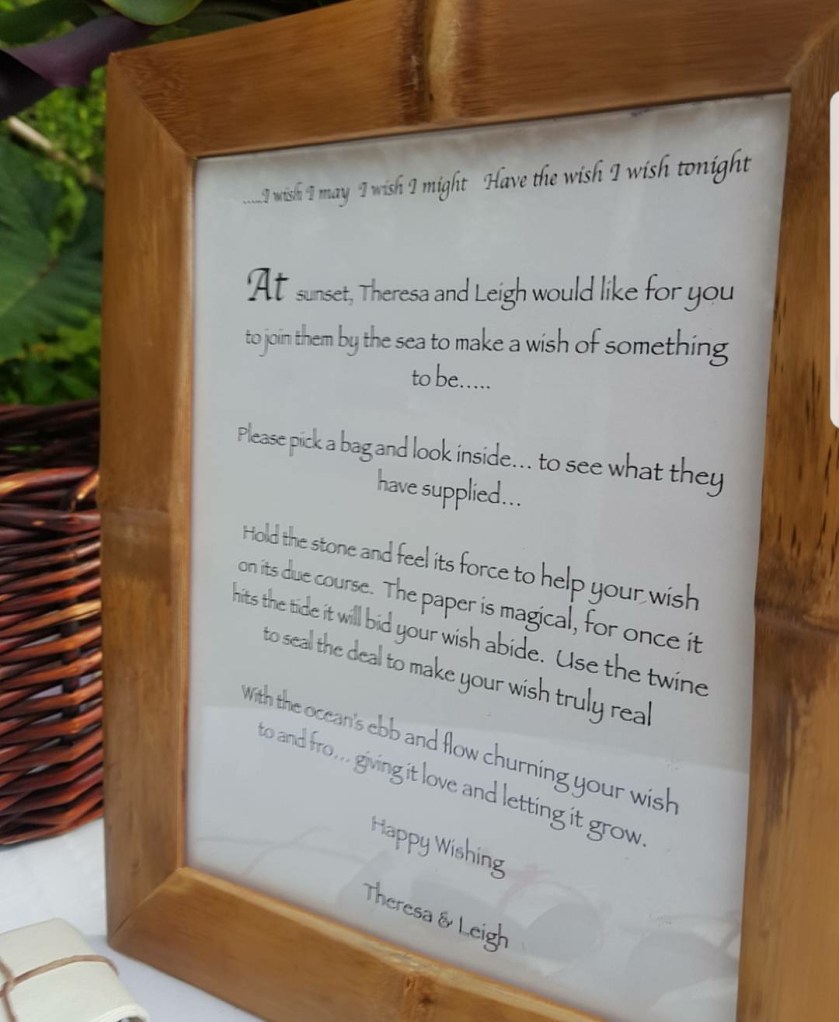 .....I wish I may I wish I might Have the wish I wish tonight
At sunset, Theresa and Leigh would like for you
to join them by the sea to make a wish of something
to be.....
Please pick a bag and look inside... to see what they
have supplied...
Hold the stone and feel its force to help your wish
on its due course. The paper is magical, for once it
hits the tide it will bid your wish abide. Use the twine
to seal the deal to make your wish truly real
With the ocean's ebb and flow churning your wish
to and fro... giving it love and letting it grow.
Happy Wishing
Theresa & Leigh